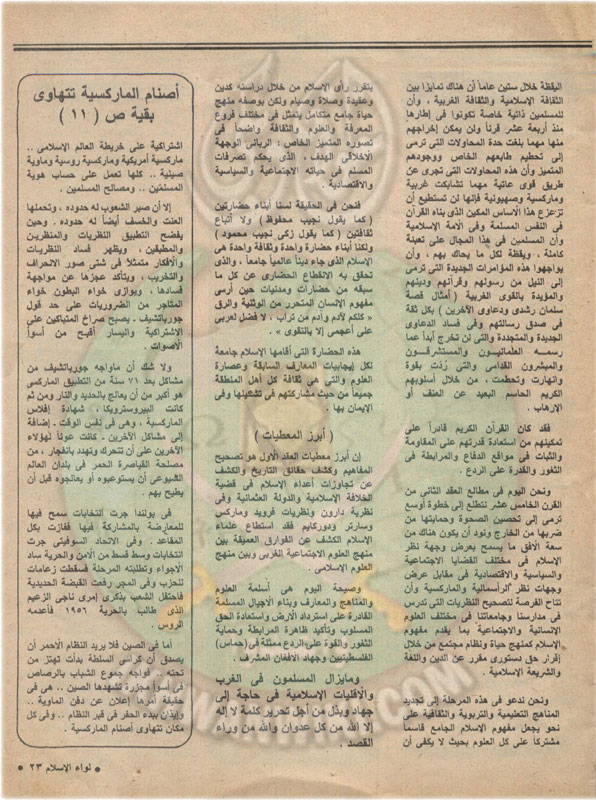 اليقظة خلال ستين عاماً أن هناك تمايزا بين
الثقافة الإسلامية والثقافة الغربية ، وأن
للمسلمين ذاتية خاصة تكونوا فى إطارها
منذ أربعة عشر قرناً ولن يمكن إخراجهم
منها مهما بلغت حدة المحاولات التى ترمى
إلى تحطيم طابعهم الخاص ووجودهم
المتميز وأن هذه المحاولات التى تجرى عن
طريق قوى عاتية مهما تشابكت غربية
وماركسية وصهيونية فإنها لن تستطيع أن
تزعزع هذا الأساس المكين الذى بناه القرآن
فى النفس المسلمة وفى الأمة الإسلامية
وأن المسلمين فى هذا المجال على تعبئة
كاملة ، ويقظة لكل ما يحاك بهم ، وأن
يواجهوا هذه المؤامرات الجديدة التى ترمى
إلى النيل من رسولهم وقرآنهم ودينهم
والمؤيدة بالقوى الغربية ( أمثال قصة
سلمان رشدى ودعاوى الآخرين ) بكل ثقة
فى صدق رسالتهم وفى فساد الدعاوى
الجديدة والمتجددة والتى لن تخرج أبداً عما
رسمه العلمانيون والمستشرقون
والمبشرون القدامى والتى ردت بقوة
وانهارت وتحطمت ، من خلال أسلوبهم
الكريم الحاسم البعيد عن العنف أو
الإرهاب .
فقد كان القرآن الكريم قادراً على
تمكينهم من استعادة قدرتهم على المقاومة
والثبات فى مواقع الدفاع والمرابطة فى
الثغور والقدرة على الردع .
ونحن اليوم فى مطالع العقد الثانى من
القرن الخامس عشر نتطلع إلى خطوة أوسع
ترمى إلى تحصين الصحوة وحمايتها من
ضربها من الخارج ونود أن يكون هناك من
سعة الأفق ما يسمح بعرض وجهة نظر
الإسلام فى مختلف القضايا الاجتماعية
والسياسية والاقتصادية فى مقابل عرض
وجهات نظر الرأسمالية والماركسية وأن
تتاح الفرصة لتصحيح النظريات التى تدرس
فى مدارسنا وجامعاتنا فى مختلف العلوم
الإنسانية والاجتماعية بما يقدم مفهوم
الإسلام كمنهج حياة ونظام مجتمع من خلال
إقرار حق دستورى مقرر عن الدين واللغة
والشريعة الإسلامية .
ونحن ندعو فى هذه المرحلة إلى تجديد
المناهج التعليمية والتربوية والثقافية على
نحو يجعل مفهوم الإسلام الجامع قاسماً
مشتركاً على كل العلوم بحيث لا يكفى أن
يتقرر رأى الإسلام من خلال دراسته كدين
وعقيدة وصلاة وصيام ولكن بوصفه منهج
حياة جامع متكامل يتمثل فى مختلف فروع
المعرفة والعلوم والثقافة واضحاً فى
تصوره المتميز الخاص : الربانى الوجهة
الأخلاقى الهدف ، الذى يحكم تصرفات
المسلم فى حياته الاجتماعية والسياسية
والاقتصادية .
فنحن فى الحقيقة لسنا أبناء حضارتين
( كما يقول نجيب محفوظ ) ولا أتباع
ثقافتين ( كما يقول زكى نجيب محمود )
ولكنا أبناء حضارة واحدة وثقافة واحدة هى
الإسلام الذى جاء ديناً عالمياً جامعاً ، والذى
تحقق به الانقطاع الحضارى عن كل ما
سبقه من حضارات ومدنيات حين أرسى
مفهوم الإنسان المتحرر من الوثنية والرق
« كلكم لآدم وآدم من تراب ، لا فضل لعربى
على أعجمى إلا بالتقوى » .
هذه الحضارة التى أقامها الإسلام جامعة
لكل إيجابيات المعارف السابقة وعصارة
العلوم والتى هى ثقافة كل أهل المنطقة
جميعاً من حيث مشاركتهم فى تشكيلها وفى
الإيمان بها .
( أبرز المعطيات )
إن أبرز معطيات العقد الأول هو تصحيح
المفاهيم وكشف حقائق التاريخ والكشف
عن تجاوزات أعداء الإسلام فى قضية
الخلافة الإسلامية والدولة العثمانية وفى
نظرية دارون ونظريات فرويد وماركس
وسارتر ودوركايم فقد استطاع علماء
الإسلام الكشف عن الفوارق العميقة بين
منهج العلوم الاجتماعية الغربى وبين منهج
العلوم الإسلامى .
وصيحة اليوم هى أسلمة العلوم
والمناهج والمعارف وبناء الأجيال المسلمة
القادرة على استرداد الأرض واستعادة الحق
المسلوب وتأكيد ظاهرة المرابطة وحماية
الثغور والقوة على الردع ممثلة فى (حماس)
الفلسطينيين وجهاد الأفغان المشرف .
ومايزال المسلمون فى الغرب
والأقليات الإسلامية فى حاجة إلى
جهاد وبذل من أجل تحرير كلمة لا إله
إلا الله من كل عدوان والله من وراء
القصد .
أصنام الماركسية تتهاوى
بقية ص ( ١١ )
اشتراكية على خريطة العالم الإسلامى ..
ماركسية أمريكية وماركسية روسية وماوية
صينية .. كلها تعمل على حساب هوية
المسلمين .. ومصالح المسلمين .
إلا أن صبر الشعوب له حدوده ، وتحملها
العنت والخسف أيضاً له حدوده . وحين
يفضح التطبيق النظريات والمنظرين
والمطبقين ، ويظهر فساد النظريات
والأفكار متمثلاً فى شتى صور الانحراف
والتخريب ، ويتأكد عجزها عن مواجهة
فسادها ، ويوازى خواء البطون خواء
المتاجر من الضروريات على حد قول
جورباتشيف .. يصبح صراخ المتباكين على
الاشتراكية واليسار أقبح من أسوأ
الأصوات .
ولا شك أن ماواجه جورباتشيف من
مشاكل بعد ٧١ سنة من التطبيق الماركسى
هو أكبر من أن يعالج بالحديد والنار ومن ثم
كانت البيروسترويكا ، شهادة إفلاس
الماركسية ، وهى فى نفس الوقت .. إضافة
إلى مشاكل الآخرين .. كانت عوناً لهؤلاء
الآخرين على أن تتحرك وتهدد بانفجار ، من
مصلحة القياصرة الحمر فى بلدان العالم
الشيوعى أن يستوعبوه أو يعالجوه قبل أن
يطيح بهم .
فى بولندا جرت انتخابات سمح فيها
للمعارضة بالمشاركة فيها ففازت بكل
المقاعد .. وفى الاتحاد السوفيتى جرت
انتخابات وسط قسط من الأمن والحرية ساد
الأجواء وتطلبته المرحلة فسقطت زعامات
للحزب وفى المجر رفعت القبضة الحديدية
فاحتفل الشعب بذكرى إمرى ناجى الزعيم
الذى طالب بالحرية ١٩٥٦ فأعدمه
الروس .
أما فى الصين فلا يريد النظام الأحمر أن
يصدق أن كراسى السلطة بدأت تهتز من
تحته .. فواجه جموع الشباب بالرصاص
فى أسوأ مجزرة تشهدها الصين .. هى فى
حقيقة أمرها إعلان عن دفن الماوية ..
وإيذان ببدء الحفر فى قبر النظام .. وفى كل
مكان تتهاوى أصنام الماركسية .
● لواء الإسلام ٢٣ ●